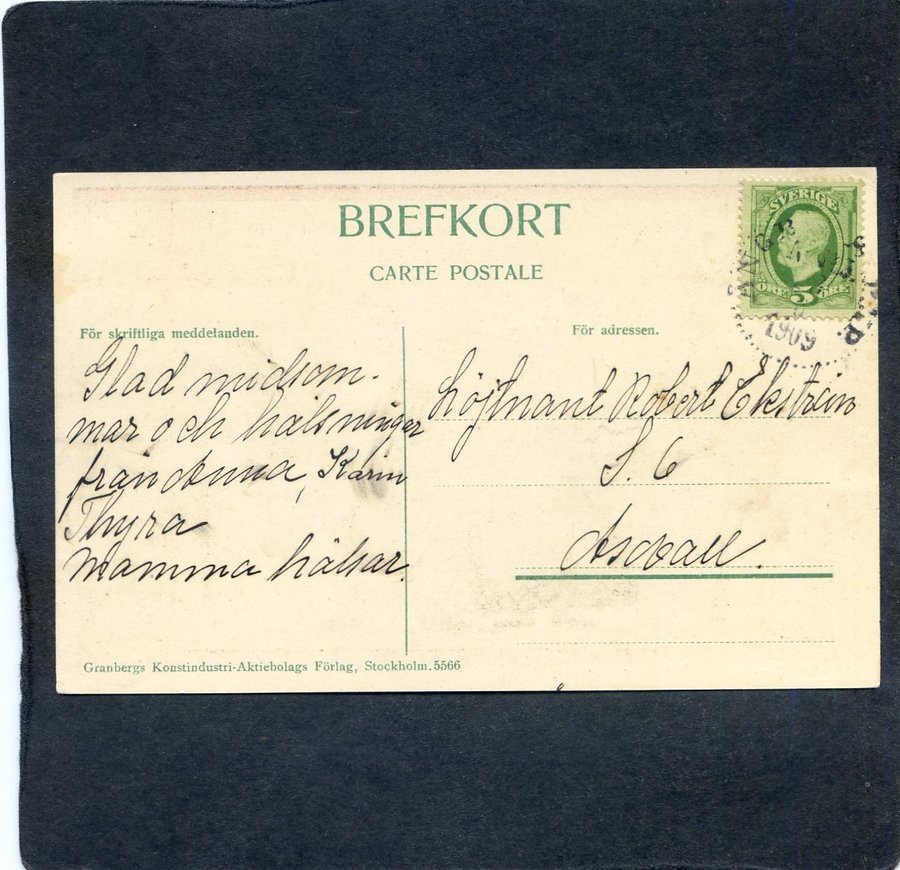 BREFKORT
CARTE POSTALE
SVERIGE
ÖRE 5 ÖRE
1909
För skriftliga meddelanden.
För adressen.
Glad midsom-
mar och hälsningar
från Anna, Karin
Thyra
Mamma hälsar.
Löjtnant Robert Ekström
I. 6
Axvall.
Granbergs Konstindustri-Aktiebolags Förlag, Stockholm. 5566